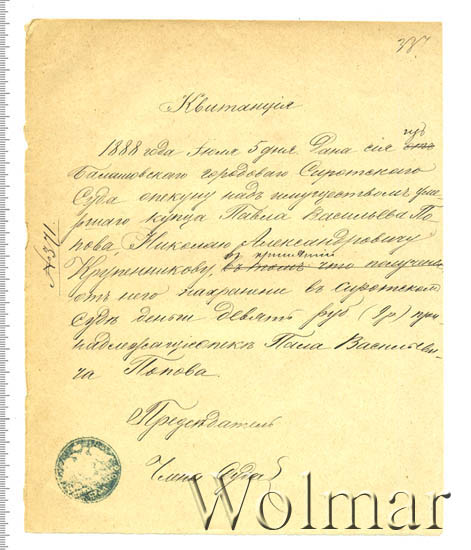 Квитанція
1888 года Іюля 5 дня Дана сія изъ
Балашовскаго городоваго Сиротскаго
Суда опекуну надъ имуществомъ умер-
шаго купца Павла Васильева По-
пова, Николаю Александровичу
Крутенникову, въ томъ что получены
отъ него на храненіе въ Сиротскомъ
судѣ деньги девять руб (9р) при-
надлежащія опекѣ Павла Васильеви-
ча Попова.
№ 371
Предсѣдатель
Члены Суда
Wolmar